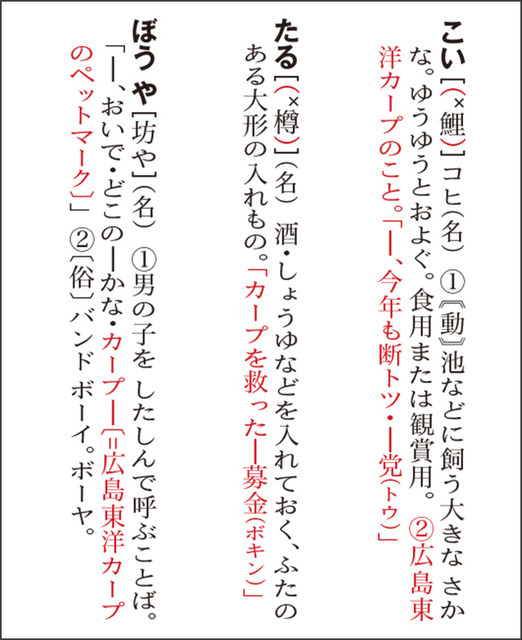 こい[(×鯉)]コヒ(名) ①《動》池などに飼う大きな さか
な。ゆうゆうとおよぐ。食用または観賞用。 ②広島東
洋カープのこと。「―、今年も断トツ・―党(トウ)」
たる[(×樽)](名) 酒・しょうゆなどを入れておく、ふたの
ある大形の入れもの。「カープを救った―募金(ボキン)」
ぼうや[坊や](名) ①男の子を したしんで呼ぶことば。
「―、おいで・どこの―かな・カープ―〔=広島東洋カープ
のペットマーク〕」 ②〔俗〕バンド ボーイ。ボーヤ。